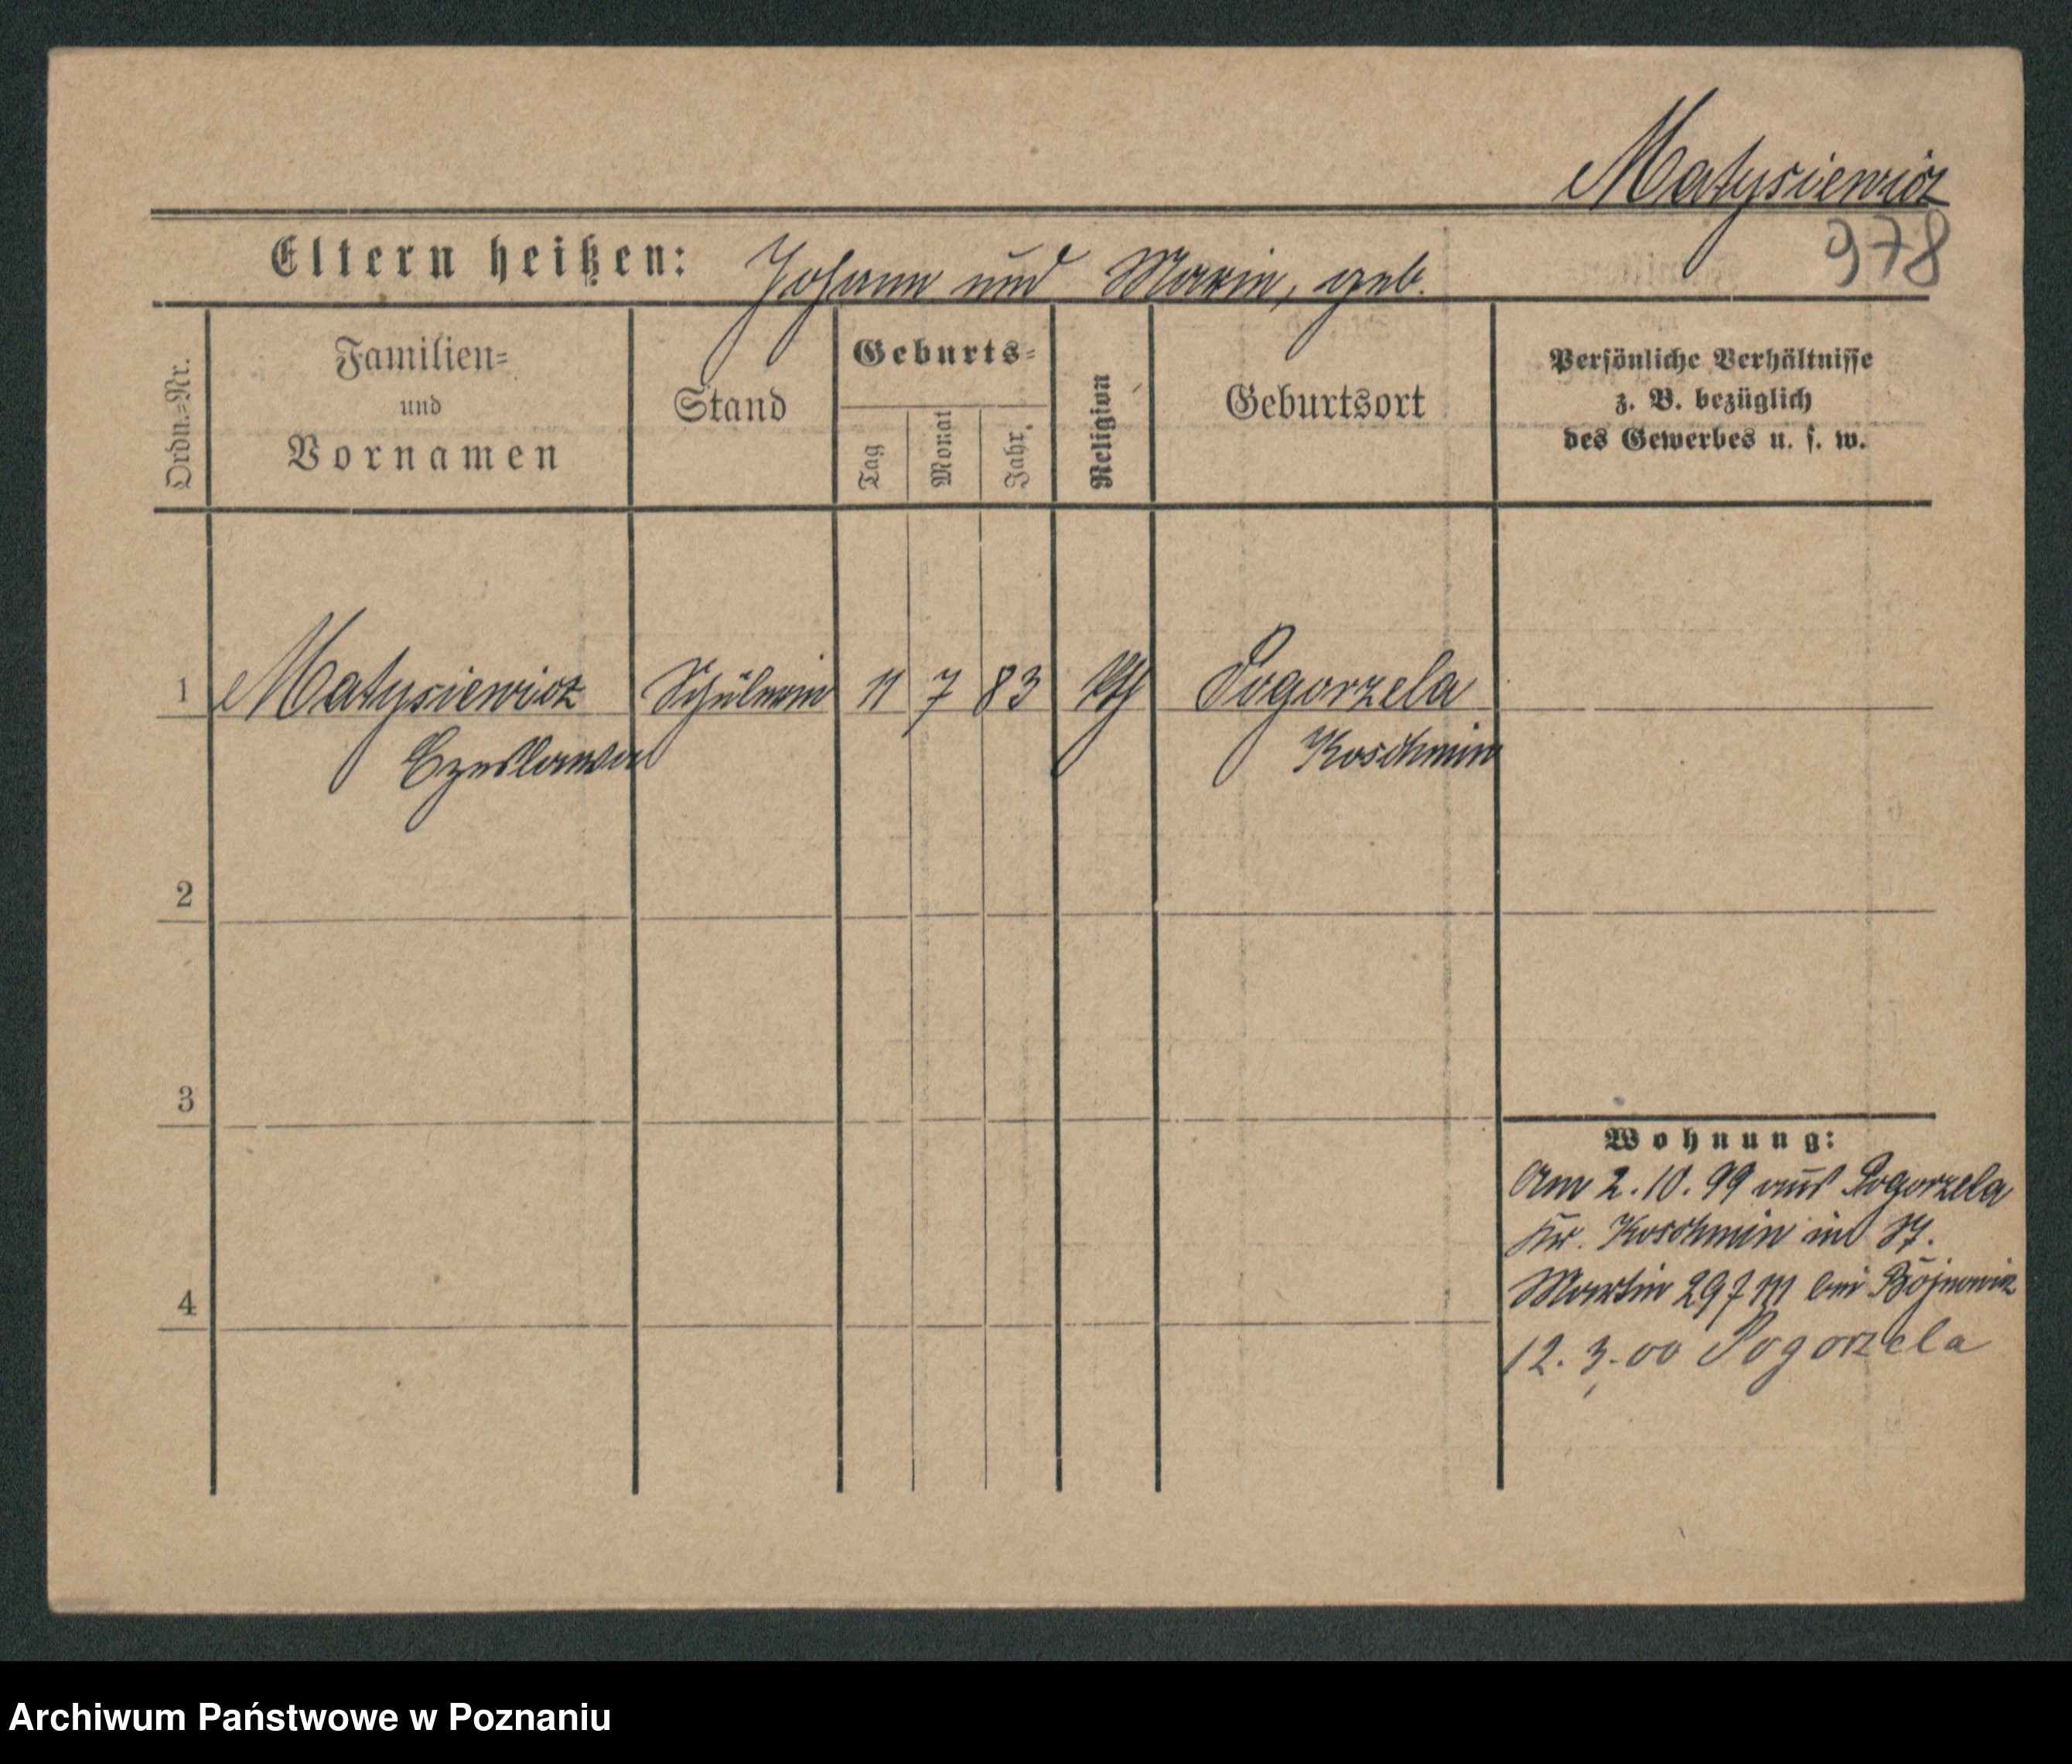 Matysiewicz
978
Eltern heißen: Johann und Marie, geb.
Ordn.=Nr.
Familien=
und
Vornamen
Stand
Geburts=
Tag
Monat
Jahr.
Religion
Geburtsort
Persönliche Verhältnisse
z. B. bezüglich
des Gewerbes u. s. w.
1 Matysiewicz Schülerin 11 7 83 kth Pogorzela
Czeslawa Koschmin
2
3
4
Wohnung:
Am 2.10.99 aus Pogorzela
Kr. Koschmin in St.
Martin 29 III bei
12.3.00 Pogorzela
Archiwum Państwowe w Poznaniu